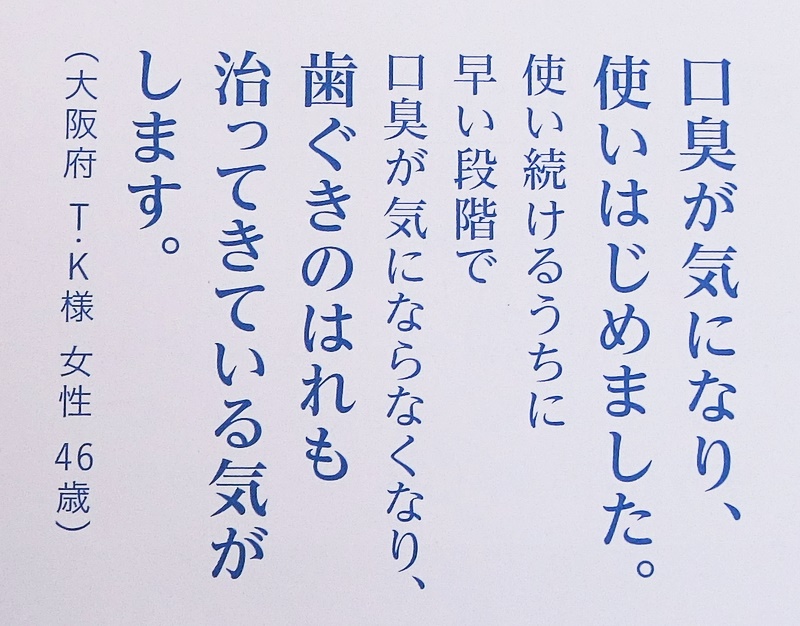 口臭が気になり、
使いはじめました。
使い続けるうちに
早い段階で
口臭が気にならなくなり、
歯ぐきのはれも
治ってきている気が
します。
（大阪府 T・K様 女性 46歳）